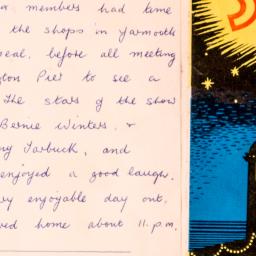 members had time
the shops in Yarmouth
before all meeting
Pier to see a
The stars of the show
Bernie Winters, &
Tarbuck, and
enjoyed a good laugh.
enjoyable day out,
home about 11. p.m.